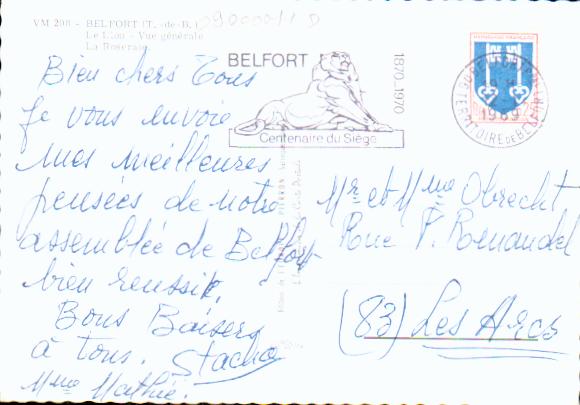 VM 208 - BELFORT (T.-de-B.)
Le Lion - Vue générale
La Roseraie
BELFORT
1870-1970
Centenaire du Siège
REPUBLIQUE FRANÇAISE
1969
TERRITOIRE DE BELFORT
Bien chers Tous
Je vous envoie
mes meilleures
pensées de notre
assemblée de Belfort
bien réussit.
Bons Baisers
à tous. Stacha
Mme Mathié.
PIERRON
Mr et Mme Obrecht
Rue P. Renaudel
(83) Les Arcs